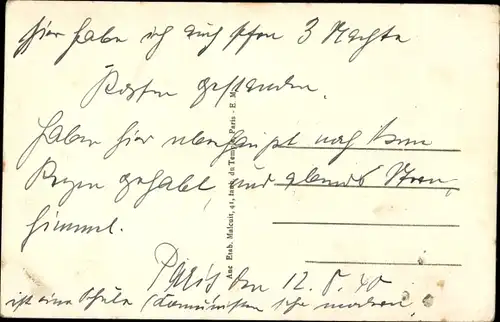 Hier habe ich auch schon 3 Nächte
Posten gestanden.
Haben hier überhaupt noch kein
Regen gehabt, und abends Stern
himmel.
Paris den 12.8.40
ist eine Schule (Komunisten) sehr modern
Anc Etab. Malcuit, 41, faub. du Temple, Paris - E. M.